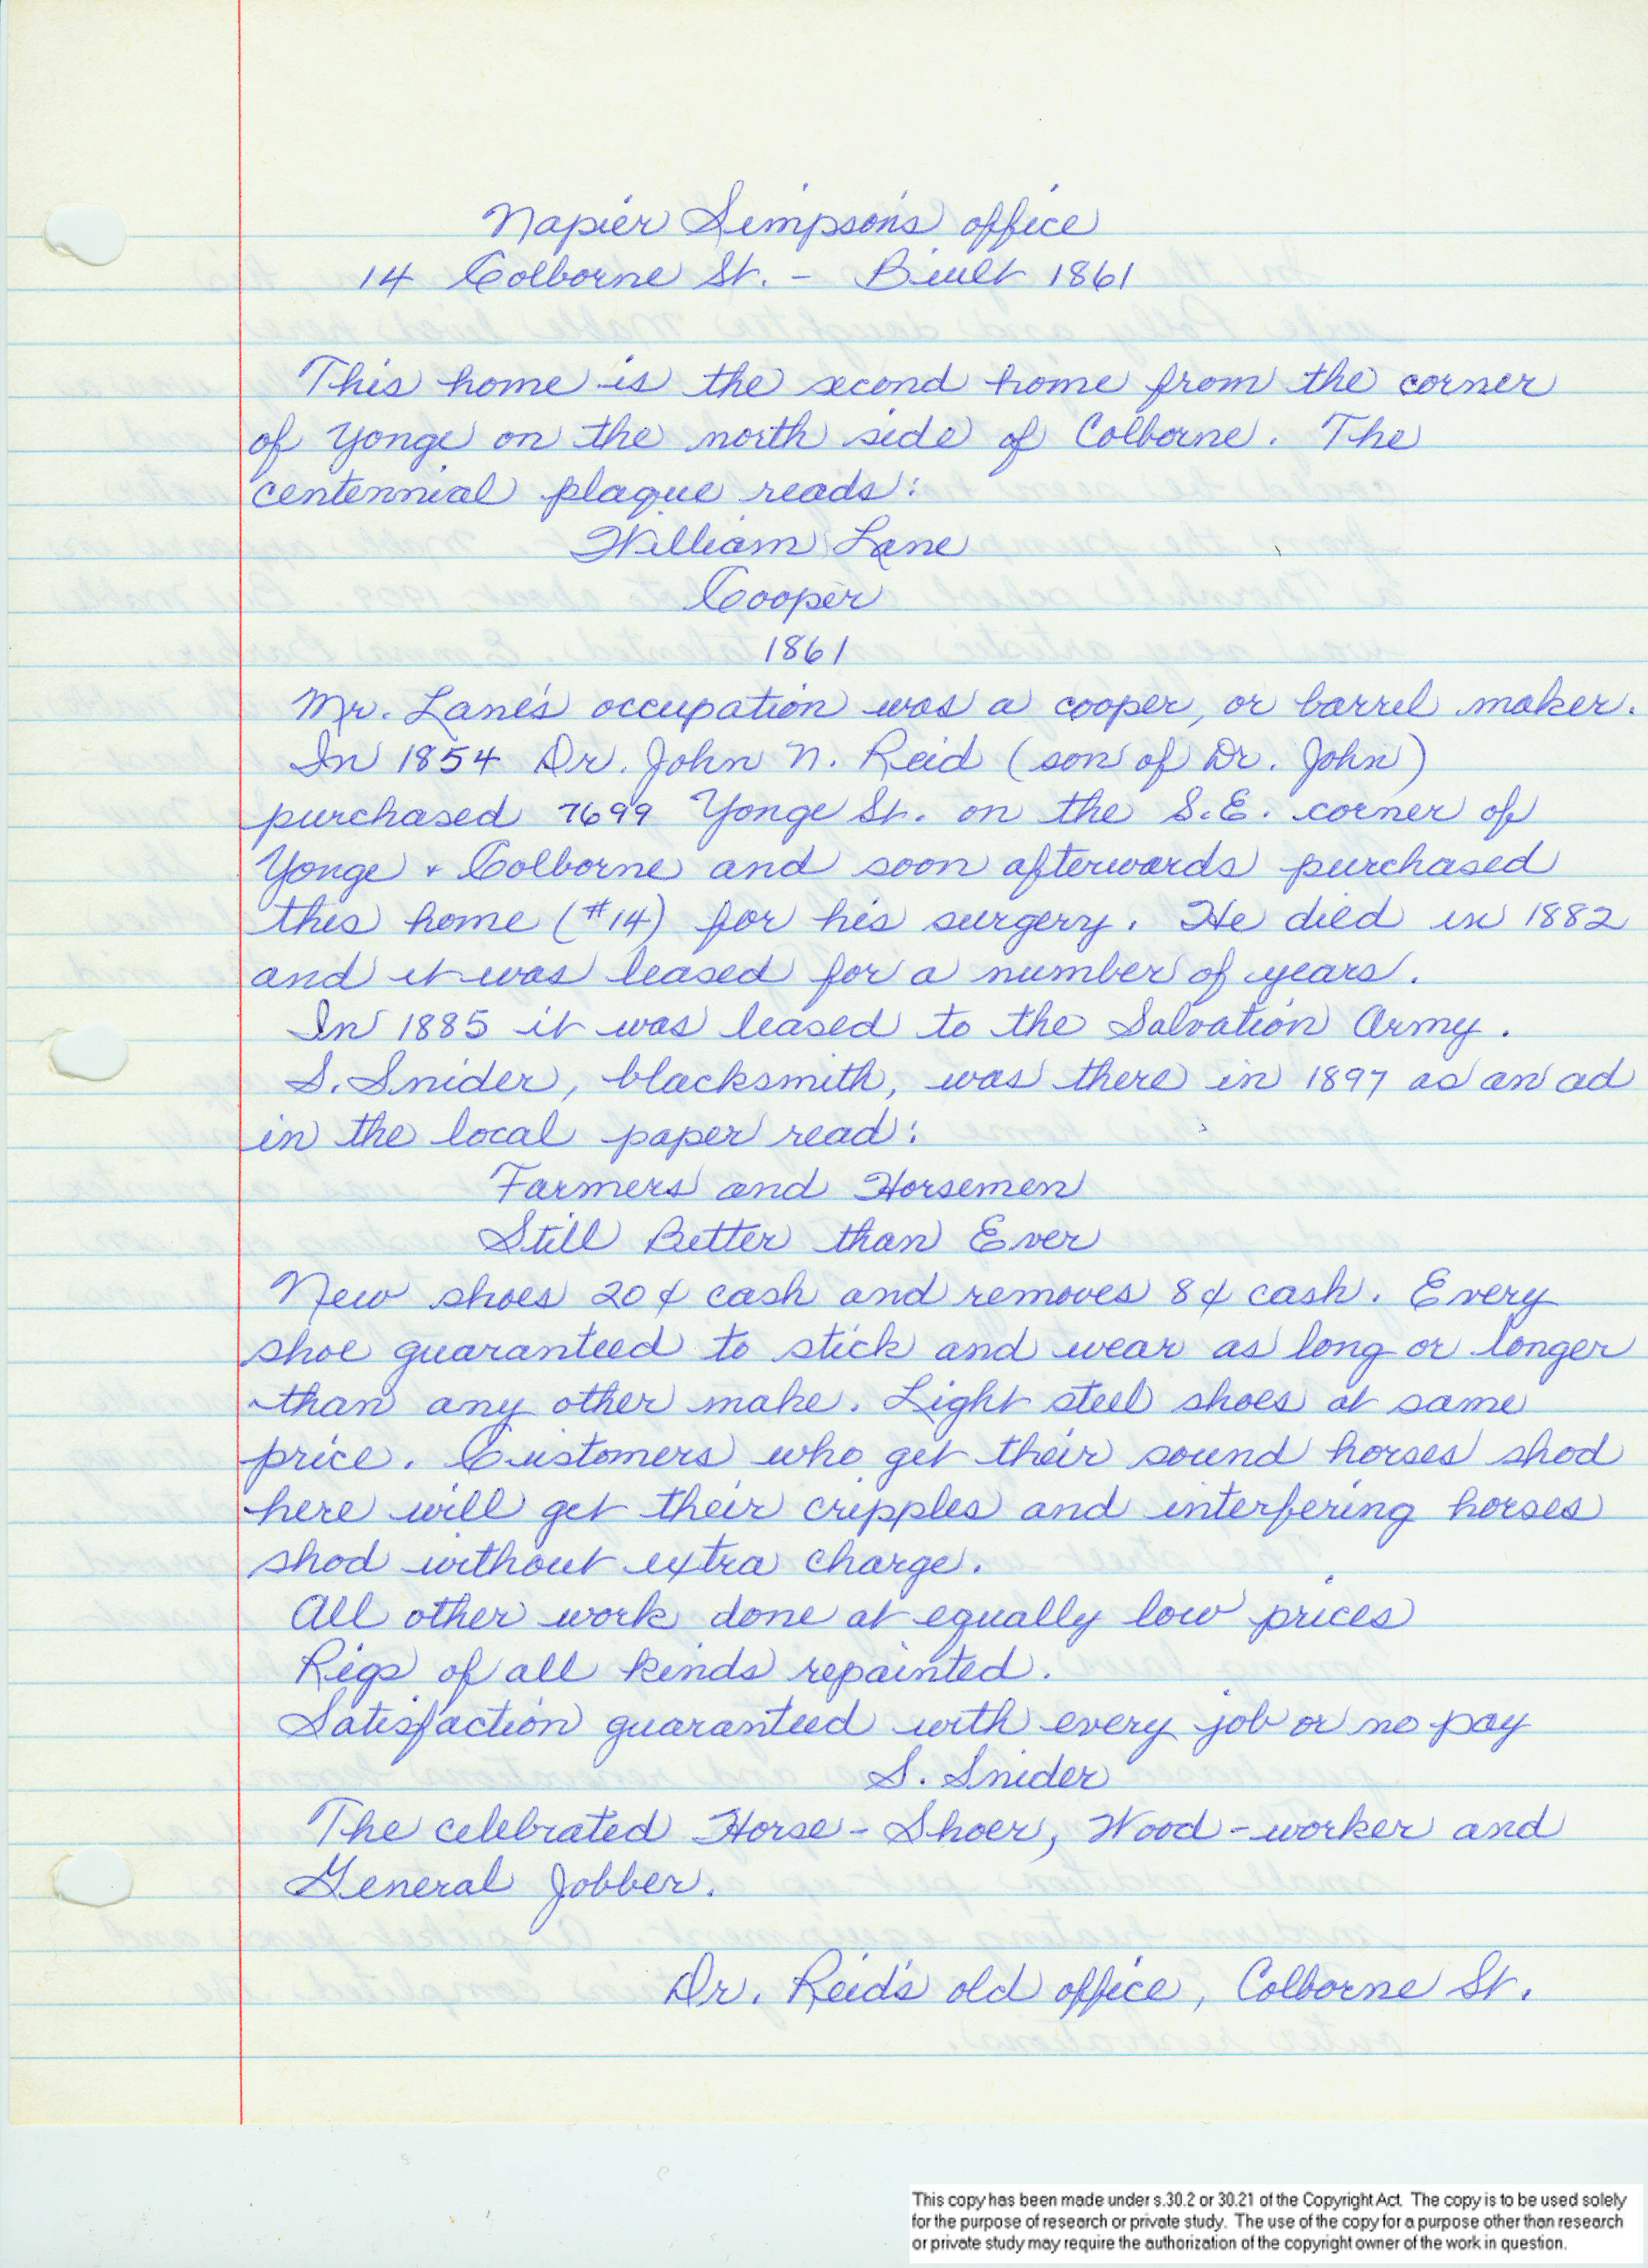 Napier Simpson's office
14 Colborne St. - Built 1861
This home is the second home from the corner
of Yonge on the north side of Colborne. The
centennial plaque reads:
William Lane
Cooper
1861
Mr. Lane's occupation was a cooper, or barrel maker.
In 1854 Dr. John N. Reid (son of Dr. John)
purchased 7699 Yonge St. on the S.E. corner of
Yonge & Colborne and soon afterwards purchased
this home (#14) for his surgery. He died in 1882
and it was leased for a number of years.
In 1885 it was leased to the Salvation Army.
S. Snider, blacksmith, was there in 1897 as an ad
in the local paper read:
Farmers and Horsemen
Still Better than Ever
New shoes 20¢ cash and removes 8¢ cash. Every
shoe guaranteed to stick and wear as long or longer
than any other make. Light steel shoes at same
price. Customers who get their sound horses shod
here will get their cripples and interfering horses
shod without extra charge.
All other work done at equally low prices
Rigs of all kinds repainted.
Satisfaction guaranteed with every job or no pay
S. Snider
The celebrated Horse-Shoer, Wood-worker and
General Jobber.
Dr. Reid's old office, Colborne St.
This copy has been made under s.30.2 or 30.21 of the Copyright Act. The copy is to be used solely
for the purpose of research or private study. The use of the copy for a purpose other than research
or private study may require the authorization of the copyright owner of the work in question.